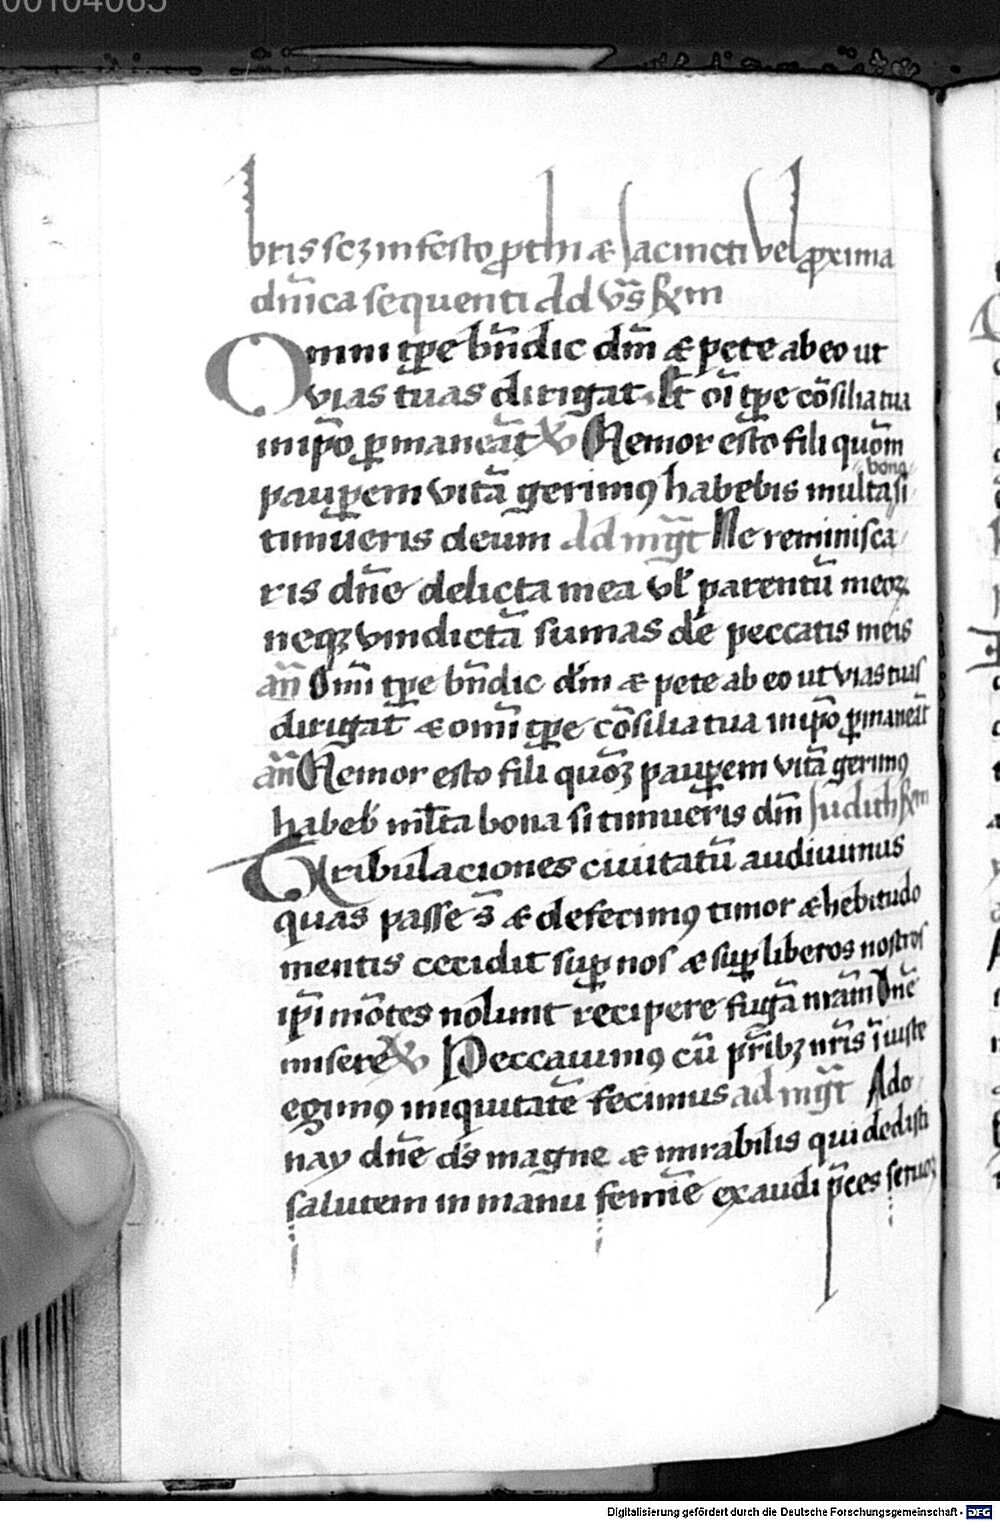 00104065
bris scz in festo ꝓthi æ Jacincti vel ꝓxima
dn̄ica sequenti Ad v̄s R̄m
Omni tꝑe bn̄dic dm̄ æ pete ab eo ut
vias tuas dirigat. Et oī tꝑe cōsilia tua
in ip̄o ꝑmaneāt ℣ Memor esto fili quōm
pauꝑem vitā gerimꝯ habebis multa bona si
timueris deum Ad mgt̄ Ne reminisca
ris dn̄e delicta mea vl̄ parentū meoꝝ
neqꝫ vindictā sumas de peccatis meis
an̄ Om̄i tꝑe bn̄dic dm̄ æ pete ab eo ut vias tuas
dirigat æ omī tꝑe cōsilia tua in ip̄o ꝑmaneāt
an̄ Memor esto fili quōꝫ pauꝑem vitā gerimꝯ
habeb̄ ml̄ta bona si timueris dm̄ Judith R̄m
Tribulaciones ciuitatū audiuimus
quas passe s̄ æ defecimꝯ timor æ hebitudo
mentis cecidit suꝑ nos æ suꝑ liberos nostros
ip̄i mōtes nolunt recipere fugā nr̄am Dn̄e
misere ℣ Peccauimꝯ cū pr̄ibꝫ nr̄is īiuste
egimꝯ iniquitatē fecimus ad mgt̄ Ado
nay dn̄e ds̄ magne æ mirabilis qui dedisti
salutem in manu femīe exaudi p̄ces seruoꝝ
Digitalisierung gefördert durch die Deutsche Forschungsgemeinschaft - DFG